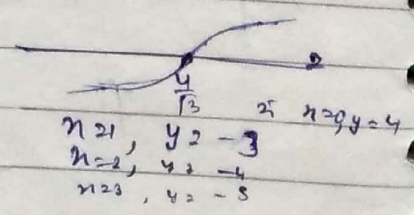 4
√3
x=0, y=4
x=1, y=-3
x=2, y=-4
x=3, y=-5